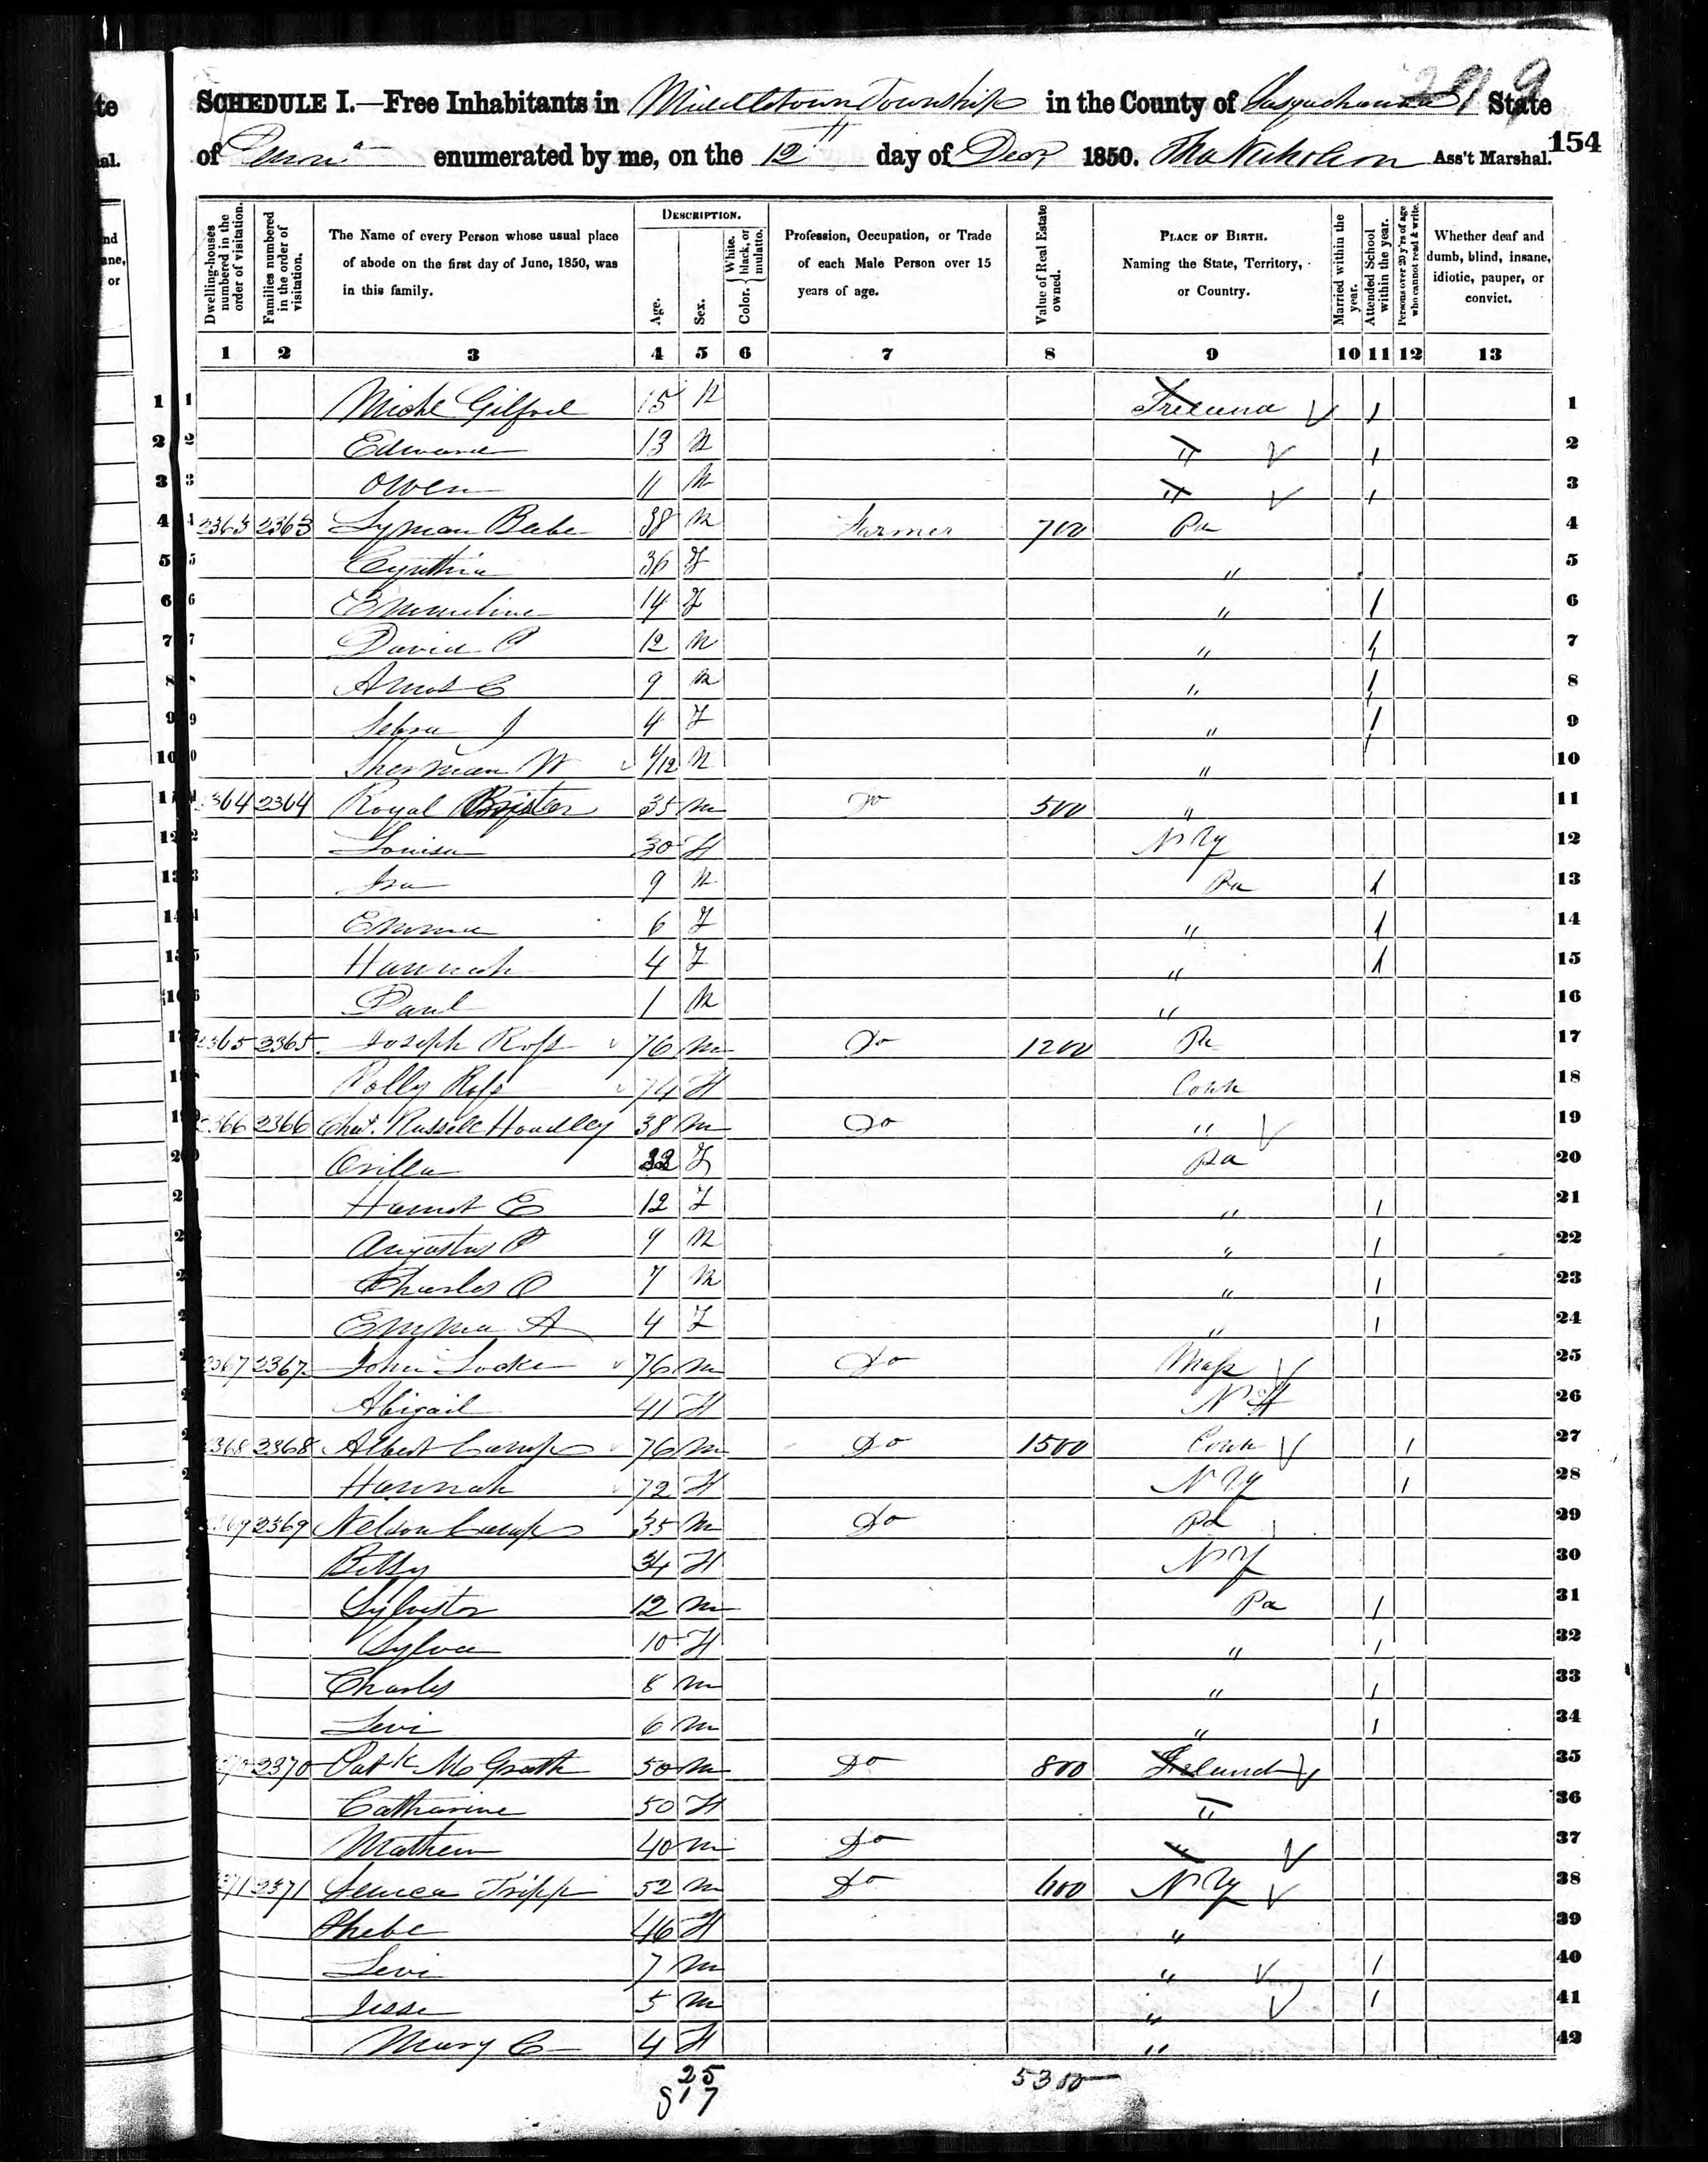 299
SCHEDULE I.—Free Inhabitants in Middletown Township in the County of Susquehanna State
of Penna enumerated by me, on the 12th day of Decr 1850. Tho Nicholson Ass't Marshal. 154
Dwelling-houses numbered in the order of visitation.
Families numbered in the order of visitation.
The Name of every Person whose usual place of abode on the first day of June, 1850, was in this family.
DESCRIPTION.
Age.
Sex.
Color. { White, black, or mulatto.
Profession, Occupation, or Trade of each Male Person over 15 years of age.
Value of Real Estate owned.
PLACE OF BIRTH. Naming the State, Territory, or Country.
Married within the year.
Attended School within the year.
Persons over 20 y'rs of age who cannot read & write.
Whether deaf and dumb, blind, insane, idiotic, pauper, or convict.
1 2 3 4 5 6 7 8 9 10 11 12 13
1 Michl Gilford 15 M Ireland / 1
2 Edward 13 M " / 2
3 Owen 11 M " / 3
4 2363 2363 Lyman Beebe 38 M Farmer 700 Pa 4
5 Cynthia 36 F " 5
6 Emmeline 14 F " / 6
7 David P 12 M " / 7
8 Amos C 9 M " / 8
9 J 4 F " / 9
10 Sherman W /12 M " 10
11 2364 2364 Royal 35 M Do 500 " 11
12 Louisa 30 F N Y 12
13 Ira 9 M Pa / 13
14 Emma 6 F " / 14
15 Hannah 4 F " / 15
16 Paul 1 M " 16
17 2365 2365 Joseph Ross 76 M Do 1200 17
18 Polly Ross 74 F Conn 18
19 2366 2366 Russell Hoadley 38 M Do " 19
20 Orilla F Pa 20
21 E 12 F " / 21
22 Augustus P 9 M " / 22
23 Charles O 7 M " / 23
24 Emma A 4 F " / 24
25 2367 2367 John Locke 76 M Do Mass 25
26 Abigail 41 F N H 26
27 2368 2368 Albert Camp 76 M Do 1500 Conn / 27
28 Hannah 72 F N Y / 28
29 2369 2369 Nelson Camp 35 M Do Pa 29
30 Betsy 34 F N Y 30
31 Sylvester 12 M Pa / 31
32 Sylva 10 F " / 32
33 Charles 8 M " / 33
34 Levi 6 M " / 34
35 2370 2370 Patk McGrath 50 M Do 800 Ireland 35
36 Catharine 50 F " 36
37 Mathew 40 M Do " 37
38 2371 2371 Seneca Tripp 52 M Do 600 N Y 38
39 Phebe 46 F " 39
40 Levi 7 M " / 40
41 Jesse 5 M " / 41
42 Mary C 4 F " 42
25
17
5300